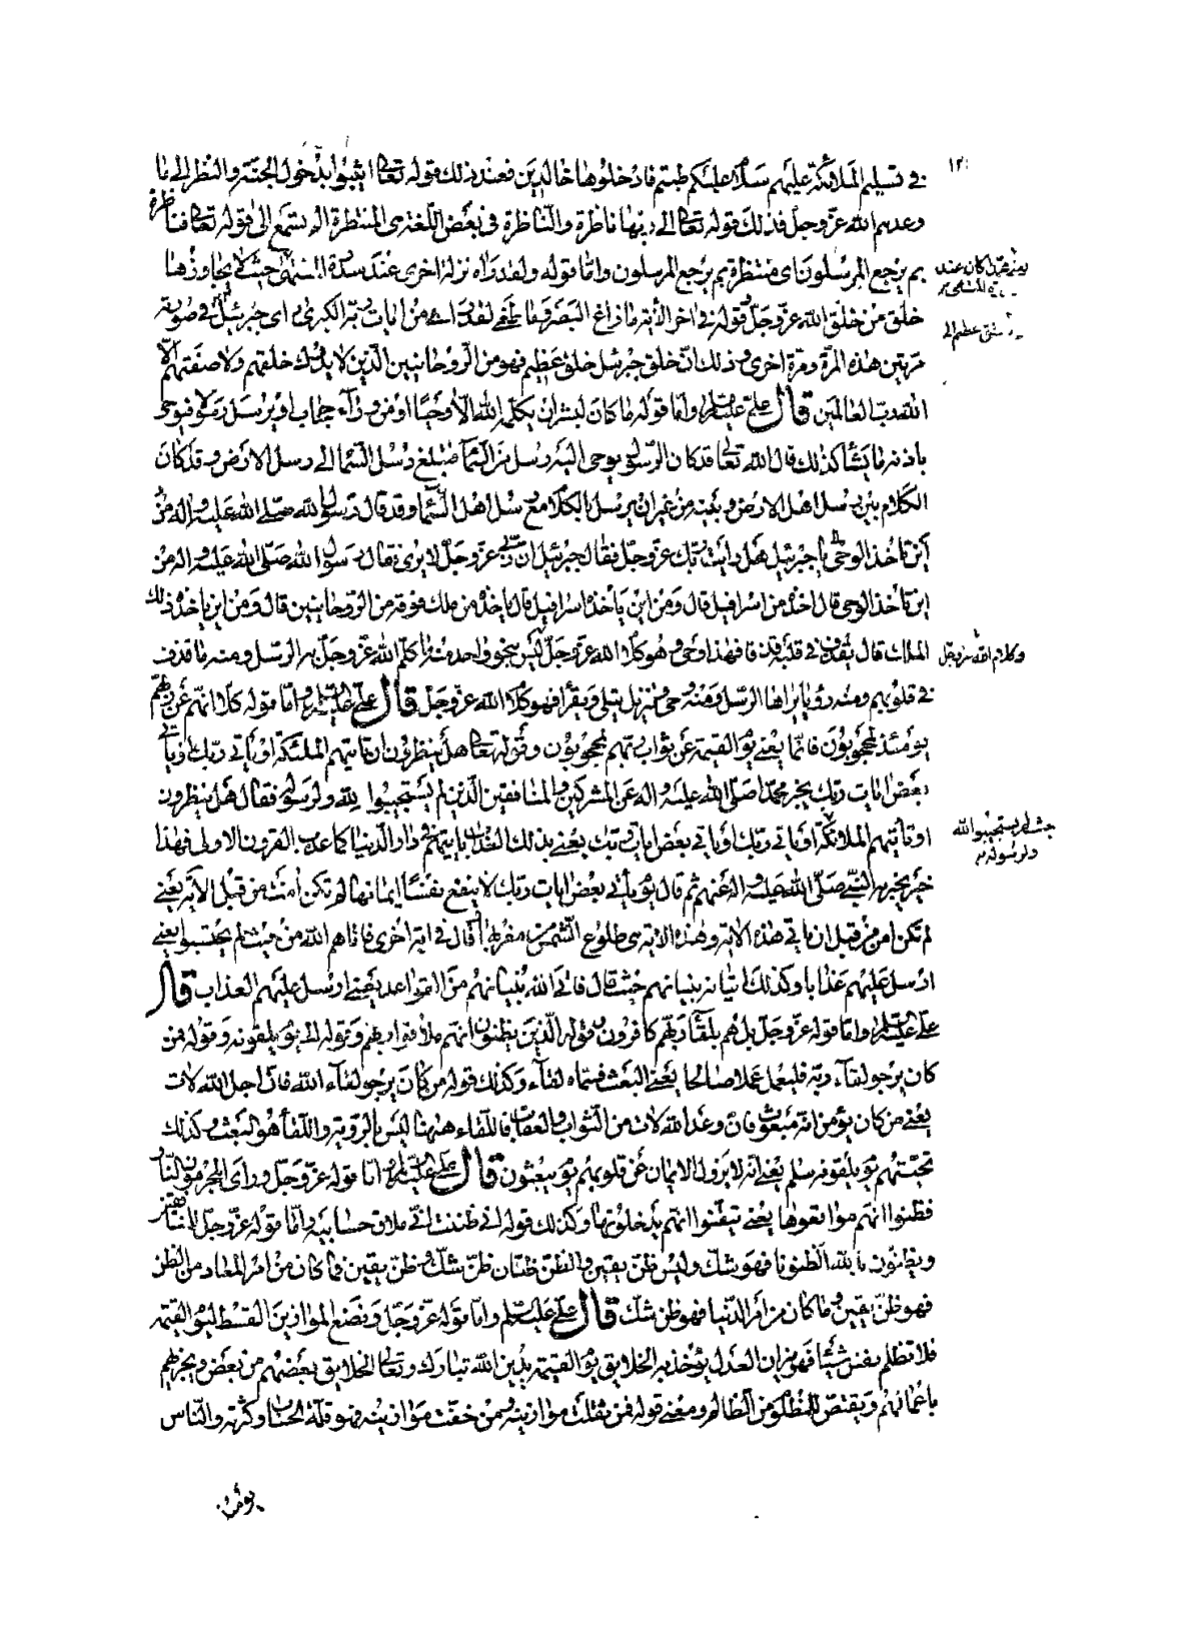 في تسليم الملائكة عليهم سلام عليكم طبتم فادخلوها خالدين فعند ذلك قوله تعالى اثيبوا بدخول الجنة والنظر إلى ما
وعدهم الله عز وجل فذلك قوله تعالى إلى ربها ناظرة والناظرة في بعض اللغة هي المنتظرة الم تسمع إلى قوله تعالى فناظرة
بم يرجع المرسلون اى منتظرة بم يرجع المرسلون واما قوله ولقد راه نزلة اخرى عند سدرة المنتهى حيث لا يجاوزها
خلق من خلق الله عز وجل وقوله في اخر الآية ما زاغ البصر وما طغى لقد راى من ايات ربه الكبرى اى جبرئيل في صورته
مرتين هذه المرة ومرة اخرى وذلك ان خلق جبرئيل خلق عظيم فهو من الروحانيين الذين لا يدرك خلقهم ولا صفتهم الا
الله رب العالمين قال علي عليه السلام واما قوله ما كان لبشر ان يكلمه الله الا وحيا او من وراء حجاب او يرسل رسولا فيوحى
باذنه ما يشا كذلك قال الله تعالى قد كان الرسول يوحى اليه رسل من السما فتبلغ رسل السما الى رسل الارض وقد كان
الكلام بين رسل اهل الارض وبينه من غير ان يرسل بالكلام مع رسل اهل السما وقد قال رسول الله صلى الله عليه واله من
اين تاخذ الوحى يا جبرئيل هل رايت ربك عز وجل فقال جبرئيل ان ربى عز وجل لا يرى فقال رسول الله صلى الله عليه واله من
اين تاخذ الوحى قال اخذه من اسرافيل قال ومن اين ياخذه اسرافيل قال ياخذه من ملك فوقه من الروحانيين قال ومن اين ياخذه ذلك
الملك قال يقذف في قلبه قذفا فهذا وحى وهو كلام الله عز وجل ليس بنحو واحد منه ما كلم الله عز وجل به الرسل ومنه ما قذف
في قلوبهم ومنه رؤيا يراها الرسل ومنه وحى وتنزيل يتلى ويقرأ فهو كلام الله عز وجل قال علي عليه السلام واما قوله كلا انهم عن ربهم
يومئذ لمحجوبون فانما يعنى يوم القيمة عن ثواب ربهم لمحجوبون وقوله تعالى هل ينظرون الا ان تاتيهم الملئكة او ياتى ربك او ياتى
بعض ايات ربك يخبر محمدا صلى الله عليه واله عن المشركين والمنافقين الذين لم يستجيبوا لله ولرسوله فقال هل ينظرون
او تاتيهم الملائكة او ياتى ربك او ياتى بعض ايات ربك يعنى بذلك العذاب ياتيهم في دار الدنيا كما عذب القرون الاولى فهذا
خبر يخبر به النبي صلى الله عليه واله عنهم ثم قال يوم ياتى بعض ايات ربك لا ينفع نفسا ايمانها لم تكن امنت من قبل الآية يعنى
لم تكن امن من قبل ان ياتى هذه الاية وهذه الاية هى طلوع الشمس من مغربها وقال في اية اخرى فاتاهم الله من حيث لم يحتسبوا يعنى
ارسل عليهم عذابا وكذلك اتيانه بنيانهم حيث قال فاتى الله بنيانهم من القواعد يعنى ارسل عليهم العذاب قال
علي عليه السلام واما قوله عز وجل بل هم بلقاء ربهم كافرون وقوله الذين يظنون انهم ملاقوا ربهم وقوله الى يوم يلقونه وقوله من
كان يرجو لقاء ربه فليعمل عملا صالحا يعنى البعث فسماه لقاء وكذلك قوله من كان يرجو لقاء الله فان اجل الله لات
يعنى من كان يؤمن انه مبعوث فان وعد الله لات من الثواب والعقاب فاللقاء ههنا ليس بالروية واللقاء هو البعث وكذلك
تحيتهم يوم يلقونه سلم يعنى انه لا يزول الايمان عن قلوبهم يوم يبعثون قال علي عليه السلام واما قوله عز وجل وراى المجرمون النار
فظنوا انهم مواقعوها يعنى تيقنوا انهم يدخلونها وكذلك قوله انى ظننت انى ملاق حسابيه واما قوله عز وجل للمنافقين
ويظنون بالله الظنونا فهو شك وليس ظن يقين والظن ظنان ظن شك وظن يقين فما كان من امر المعاد من الظن
فهو ظن يقين وما كان من امر الدنيا فهو ظن شك قال علي عليه السلام واما قوله عز وجل ونضع الموازين القسط ليوم القيمة
فلا تظلم نفس شيئا فهو ميزان العدل يؤخذ به الخلايق يوم القيمة يدين الله تبارك وتعالى الخلايق بعضهم من بعض ويجزيهم
باعمالهم ويقتص للمظلوم من الظالم ومعنى قوله فمن ثقلت موازينه ومن خفت موازينه فهو قلة الحساب وكثرته والناس
يعنى محمدا كان عند
وكلام الله عز وجل
حيث لم يستجيبوا لله
ولرسوله